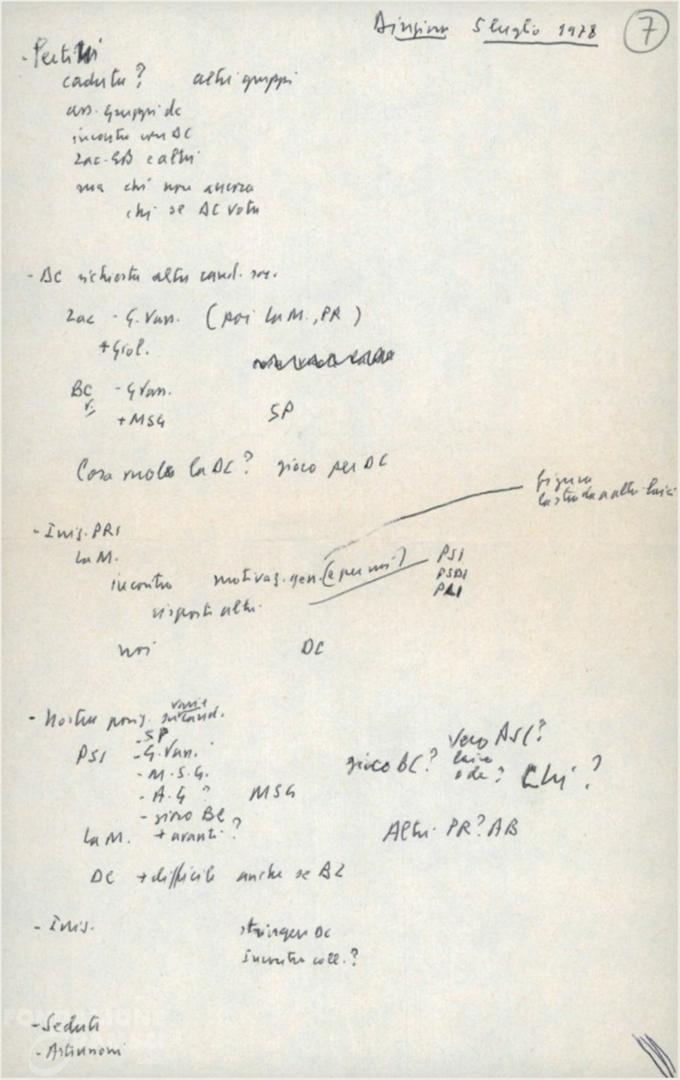 Direzione 5 luglio 1978 7
- Pertini
caduta? altri gruppi
ass. gruppi dc
incontro con DC
Zac-GB e altri
ma chi non ancora
chi se DC vota
- DC richiesta altri cand. soc.
Zac - G. Vass. (poi La M., PR)
+ Giol.
BC - G Vass.
+ MSG SP
Cosa vuole la DC? gioco per DC
figura
la strada a altri laici
- Iniz. PRI
La M.
incontro motivaz. gen. (e per noi) PSI
PSDI
PLI
risposti altri
noi DC
- Nostra posiz. varie
su cand.
- SP
PSI - G. Vass.
- M.S.G.
- A.G ? MSG
- gioco BC ?
La M. + avanti
Vero ASC?
gioco BC? laico
o dc? Chi?
Altri PR? AB
DC + difficile anche se BZ
- Iniz. stringere DC
incontro coll.?
- Seduta
- Astensioni
FONDAZIONE